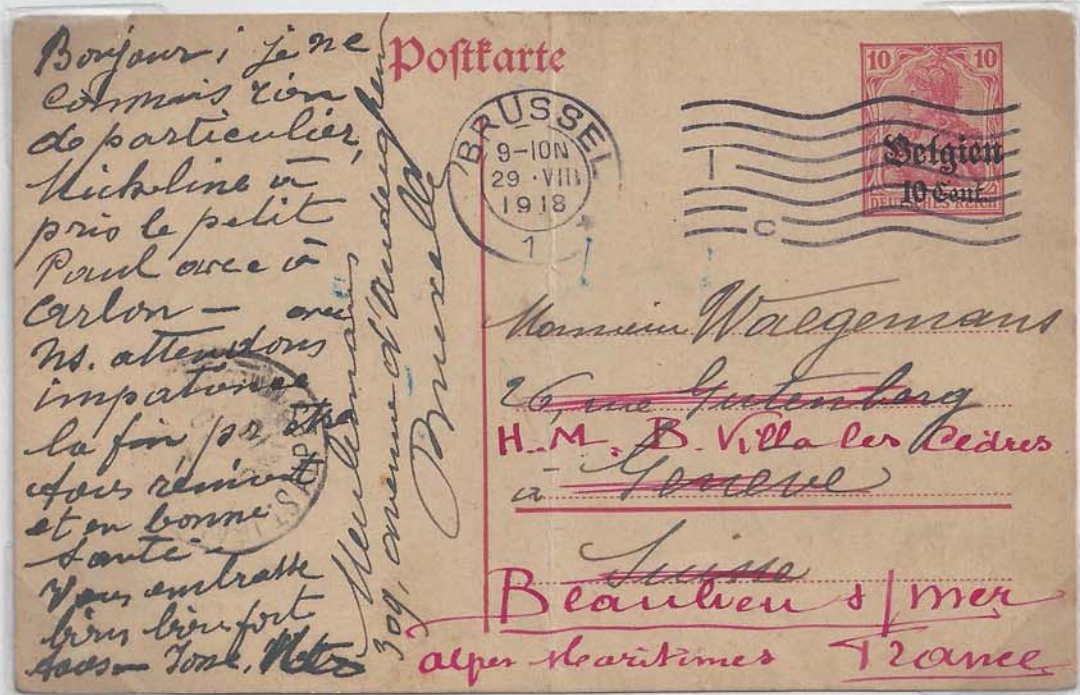 Bonjour, je ne
connais rien
de particulier,
Micheline a
pris le petit
Paul avec à
Carlon –
ns. attendons
impatience
la fin, pr être
tous réunis
et en bonne
santé
Vous embrasse
bien bien fort
tous
Meulemans
309, avenue d'Auderghem
Bruxelles
Postkarte
BRÜSSEL
9-10N
29.VIII
1918
1
c
10 10
Belgien
10 Cent.
DEUTSCHES REICH
Monsieur Waegemans
26, rue Gutenberg
H.M. B. Villa les Cèdres
à Genève
Suisse
Beaulieu s/mer
Alpes Maritimes France